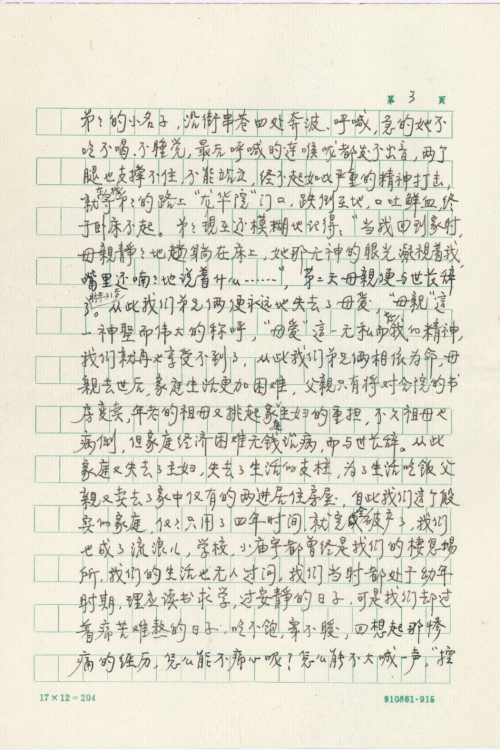 第 3 頁
弟弟的小名子，沿街串巷四处奔波、呼喊，急的她不
吃不喝、不睡觉，最后呼喊的连喉咙都交不出音，两个
腿也支撑不住，不能站立，终不起如此严重的精神打击，
就在寻弟弟的路上"龙华院"门口，跌倒在地，口吐鲜血，终
于卧床不起。弟弟现在还模糊地记得："当我回到家时，
母亲静静地趟躺在床上，她那无神的眼光凝视着我
嘴里还喃喃地说着什么……"，第二天母亲便与世长辞
了。从此我们弟兄俩便永远地失去了母爱，"母亲"这
一神聖而伟大的称呼，"母爱"这一无私而的精神，
我们就再也享受不到了，从此我们弟兄俩相依为命，母
亲去世后，家庭生活更加困难，父亲只有将对合院的书
房变卖，年老的祖母又挑起家庭主妇的重担，不久祖母也
病倒，但家庭经济困难无钱治病，而与世长辞。从此
家庭又失去了主妇，失去了生活的支柱，为了生活吃饭父
亲又卖去了家中仅有的两进居住房屋，自此我们这个殷
实的家庭，仅仅只用了四年时间，就完全破产了，我们
也成了流浪儿，学校、小庙宇都曾经是我们的棲息場
所，我们的生活也无人过问，我们当时都处于幼年
时期，理应读书求学，过安静的日子，可是我们却过
着痛苦难熬的日子，吃不饱、穿不暖，回想起那惨
痛的经历，怎么能不痛心呢？怎么能不大喊一声，"控
17×12=204
910861·915